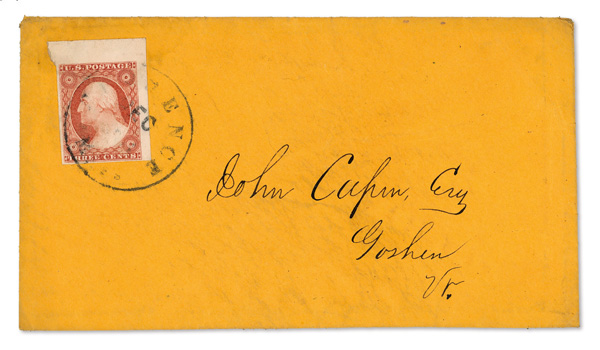 U.S. POSTAGE
THREE CENTS
John Capen, Esq
Goshen
Vt.